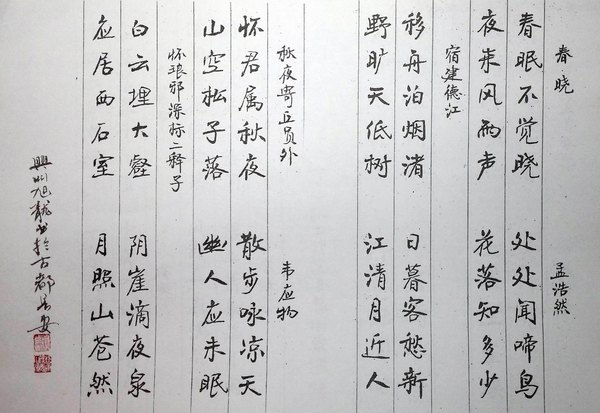 春晓 孟浩然
春眠不觉晓 处处闻啼鸟
夜来风雨声 花落知多少
宿建德江
移舟泊烟渚 日暮客愁新
野旷天低树 江清月近人
秋夜寄丘员外 韦应物
怀君属秋夜 散步咏凉天
山空松子落 幽人应未眠
怀琅邪深标二释子
白云埋大壑 阴崖滴夜泉
应居西石室 月照山苍然
兴州旭龙书于古都长安